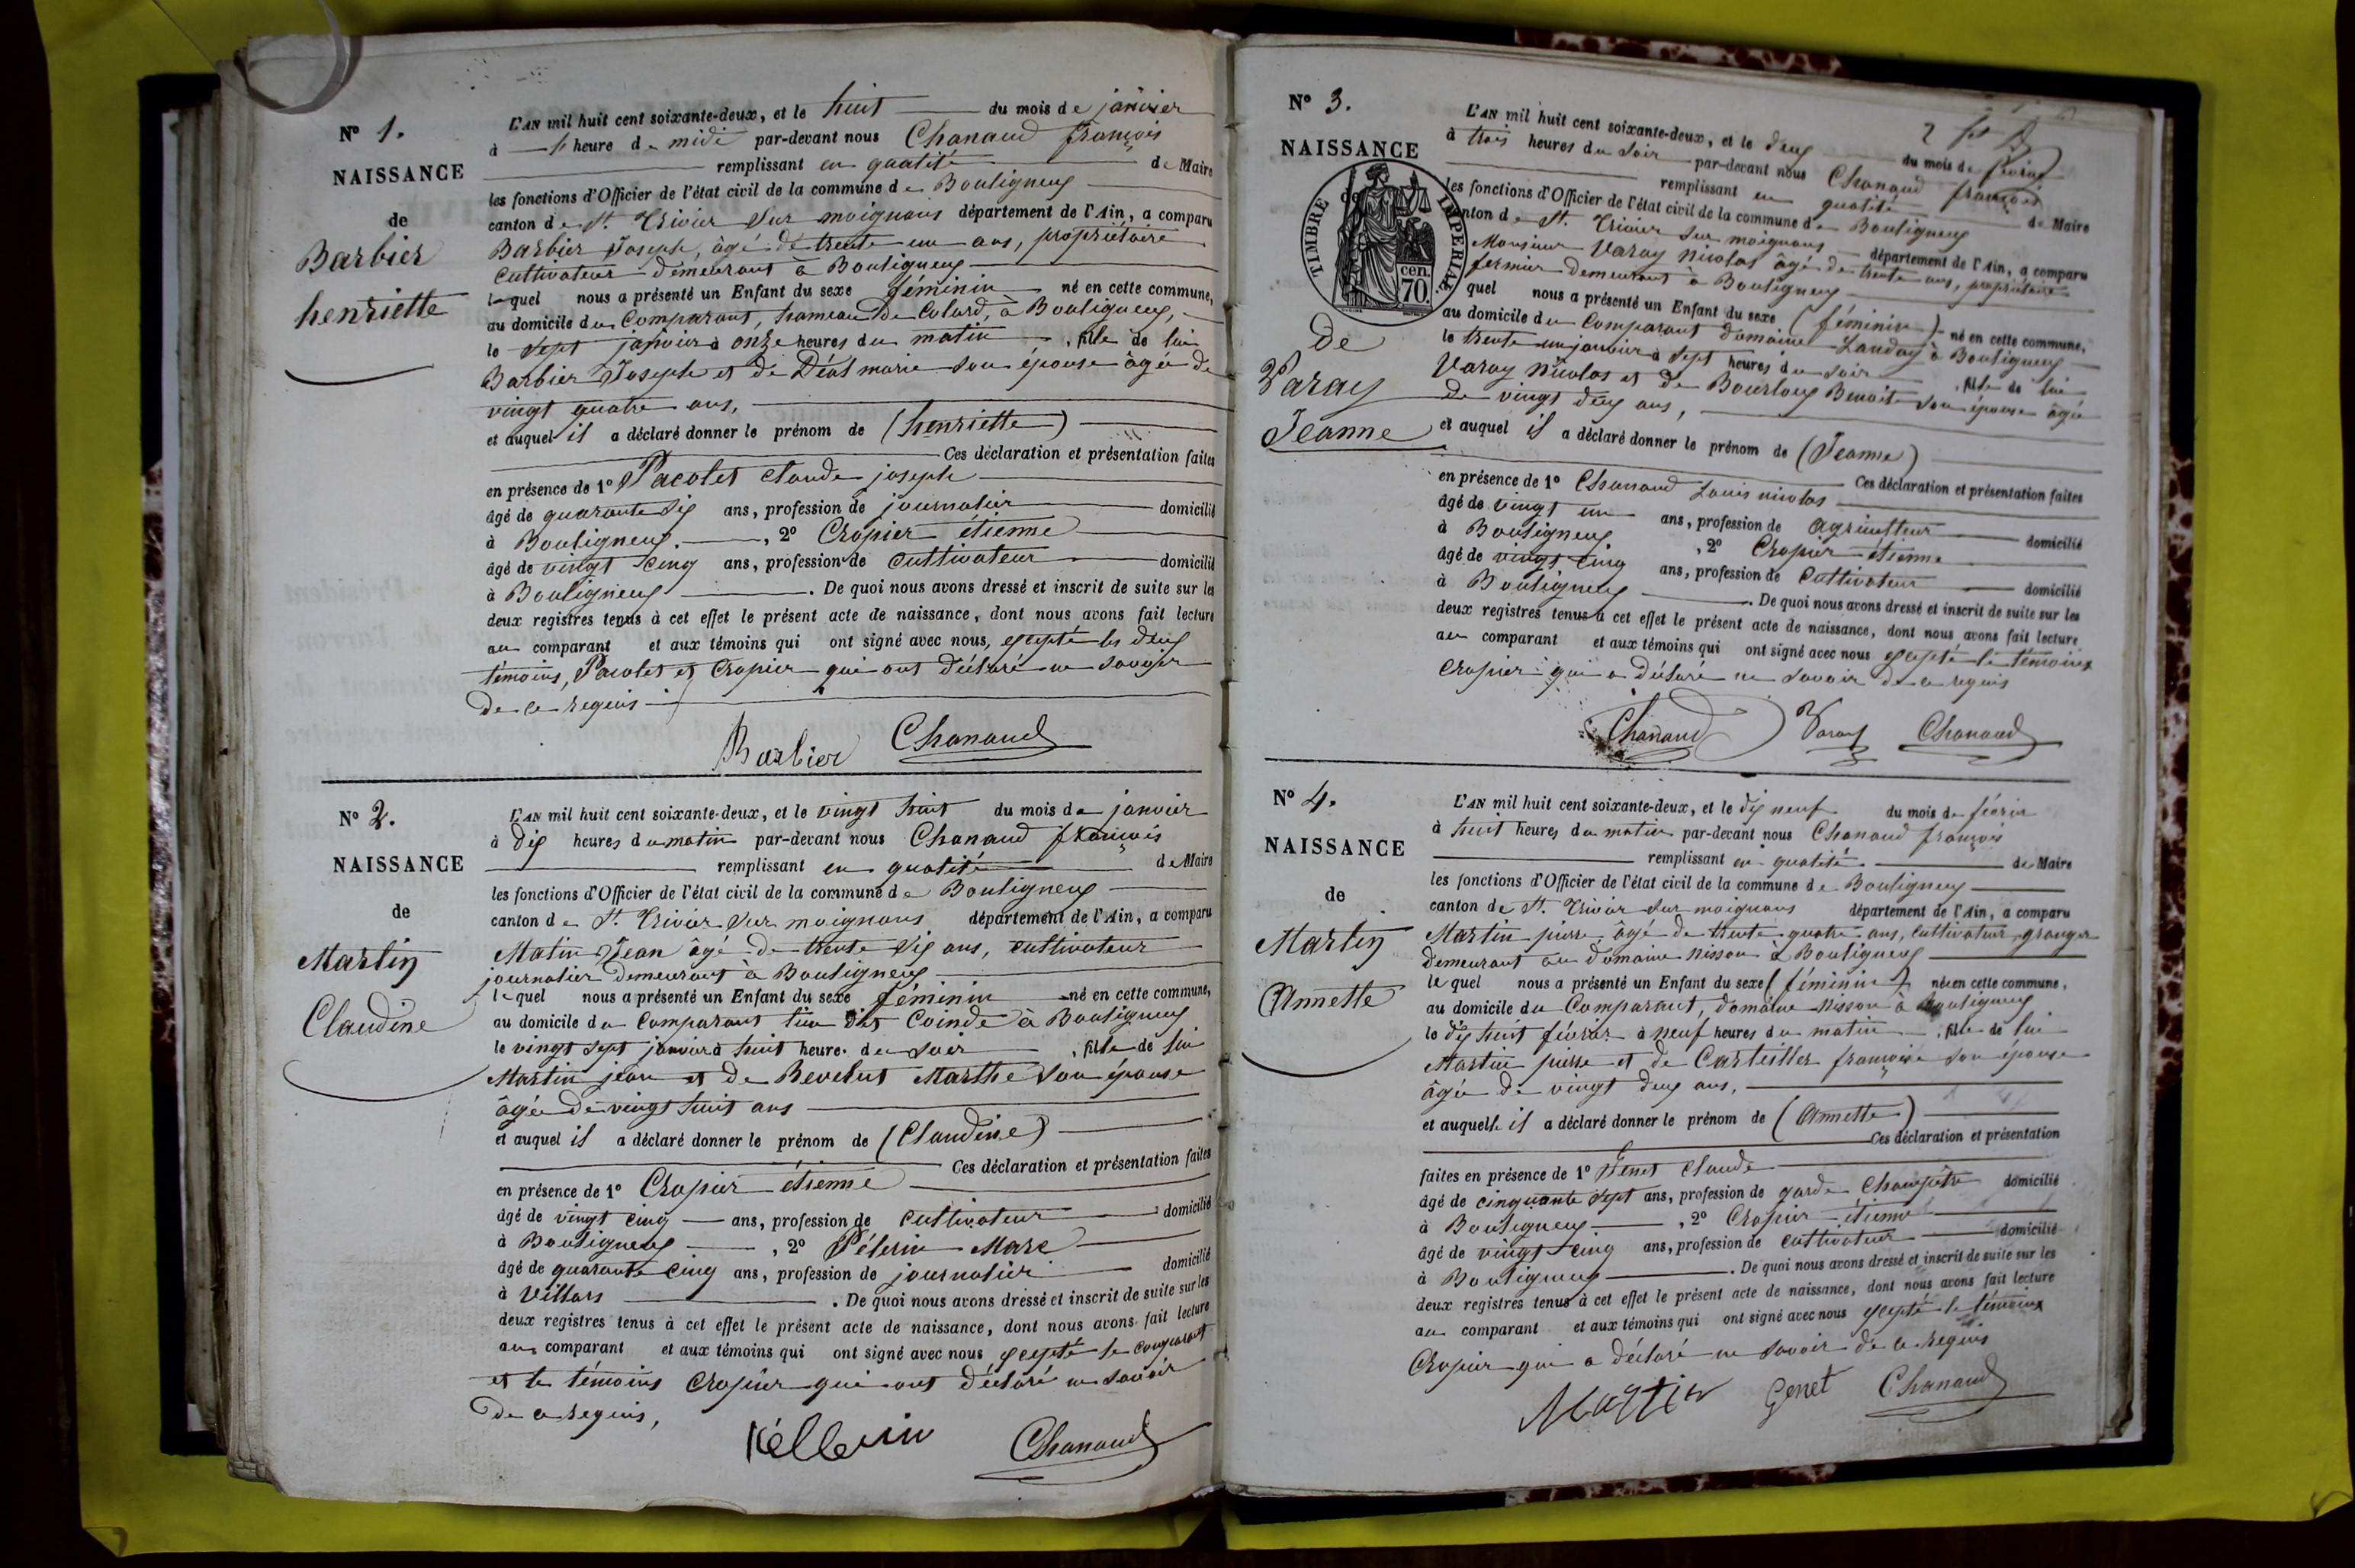 N° 1.
NAISSANCE
de
Barbier
henriette
L'AN mil huit cent soixante-deux, et le huit du mois de janvier
à heure de midi par-devant nous Chanaud françois
remplissant en qualité de Maire
les fonctions d'Officier de l'état civil de la commune de Bouligneux
canton de St. Trivier sur moignans département de l'Ain, a comparu
Barbier Joseph, âgé de trente un ans, propriétaire
Cultivateur demeurant à Bouligneux
lequel nous a présenté un Enfant du sexe féminin né en cette commune,
au domicile du Comparant, hameau de Colard, à Bouligneux,
le sept janvier à onze heures du matin, fille de lui
Barbier Joseph et de Déat marie son épouse âgée de
vingt quatre ans,
et auquel il a déclaré donner le prénom de (henriette)
Ces déclaration et présentation faites
en présence de 1° Pacolet claude joseph
âgé de quarante six ans, profession de journalier domicilié
à Bouligneux, 2° Cropier étienne
âgé de vingt cinq ans, profession de cultivateur domicilié
à Bouligneux. De quoi nous avons dressé et inscrit de suite sur les
deux registres tenus à cet effet le présent acte de naissance, dont nous avons fait lecture
au comparant et aux témoins qui ont signé avec nous, excepté les deux
témoins, Pacolet et Cropier qui ont déclaré ne savoir
de ce requis
Barbier Chanaud
N° 2.
NAISSANCE
de
Martin
Claudine
L'AN mil huit cent soixante-deux, et le vingt huit du mois de janvier
à dix heures du matin par-devant nous Chanaud françois
remplissant en qualité de Maire
les fonctions d'Officier de l'état civil de la commune de Bouligneux
canton de St. Trivier sur moignans département de l'Ain, a comparu
Matin Jean âgé de trente six ans, cultivateur
journalier demeurant à Bouligneux
lequel nous a présenté un Enfant du sexe féminin né en cette commune,
au domicile du Comparant lieu dit Coinde à Bouligneux
le vingt sept janvier à huit heure. du soir, fille de lui
Martin jean et de Revelut Marthe son épouse
âgée de vingt huit ans
et auquel il a déclaré donner le prénom de (Claudine)
Ces déclaration et présentation faites
en présence de 1° Cropier étienne
âgé de vingt cinq ans, profession de cultivateur domicilié
à Bouligneux, 2° Pélerin Marc
âgé de quarante cinq ans, profession de journalier domicilié
à Villars. De quoi nous avons dressé et inscrit de suite sur les
deux registres tenus à cet effet le présent acte de naissance, dont nous avons fait lecture
au comparant et aux témoins qui ont signé avec nous excepté le comparant
et le témoins Cropier qui ont déclaré ne savoir
de ce requis,
Pélleriin Chanaud
N° 3.
NAISSANCE
TIMBRE IMPERIAL
cen.
70.
de
Varay
Jeanne
L'AN mil huit cent soixante-deux, et le deux du mois de février
à trois heures du soir par-devant nous Chanaud françois
remplissant en qualité de Maire
les fonctions d'Officier de l'état civil de la commune de Bouligneux
canton de St. Trivier sur moignans département de l'Ain, a comparu
Monsieur Varay Nicolas âgé de trente ans, propriétaire
fermier demeurant à Bouligneux
quel nous a présenté un Enfant du sexe (féminin) né en cette commune,
au domicile du Comparant domaine Landay à Bouligneux
le trente un janvier à sept heures du soir, fille de lui
Varay Nicolas et de Bourlouy Benoîte son épouse âgée
de vingt deux ans,
et auquel il a déclaré donner le prénom de (Jeanne)
Ces déclaration et présentation faites
en présence de 1° Chanaud Louis nicolas
âgé de vingt un ans, profession de agriculteur domicilié
à Bouligneux, 2° Cropier étienne
âgé de vingt cinq ans, profession de cultivateur domicilié
à Bouligneux. De quoi nous avons dressé et inscrit de suite sur les
deux registres tenus à cet effet le présent acte de naissance, dont nous avons fait lecture
au comparant et aux témoins qui ont signé avec nous excepté le témoins
Cropier qui a déclaré ne savoir de ce requis
Chanaud Varay Chanaud
N° 4.
NAISSANCE
de
Martin
Annette
L'AN mil huit cent soixante-deux, et le dix neuf du mois de février
à huit heures du matin par-devant nous Chanaud françois
remplissant en qualité de Maire
les fonctions d'Officier de l'état civil de la commune de Bouligneux
canton de St. Trivier sur moignans département de l'Ain, a comparu
Martin pierre, âgé de trente quatre ans, cultivateur, granger
demeurant au domaine Nisson à Bouligneux
lequel nous a présenté un Enfant du sexe (féminin) née en cette commune,
au domicile du Comparant, domaine Nisson à Bouligneux
le dix huit février à neuf heures du matin, fille de lui
Martin pierre et de Carteiller françoise son épouse
âgée de vingt deux ans,
et auquelle il a déclaré donner le prénom de (Annette)
Ces déclaration et présentation
faites en présence de 1° Genet Claude
âgé de cinquante sept ans, profession de garde champêtre domicilié
à Bouligneux, 2° Cropier étienne
âgé de vingt cinq ans, profession de cultivateur domicilié
à Bouligneux. De quoi nous avons dressé et inscrit de suite sur les
deux registres tenus à cet effet le présent acte de naissance, dont nous avons fait lecture
au comparant et aux témoins qui ont signé avec nous excepté le témoins
Cropier qui a déclaré ne savoir de ce requis
Martin Genet Chanaud